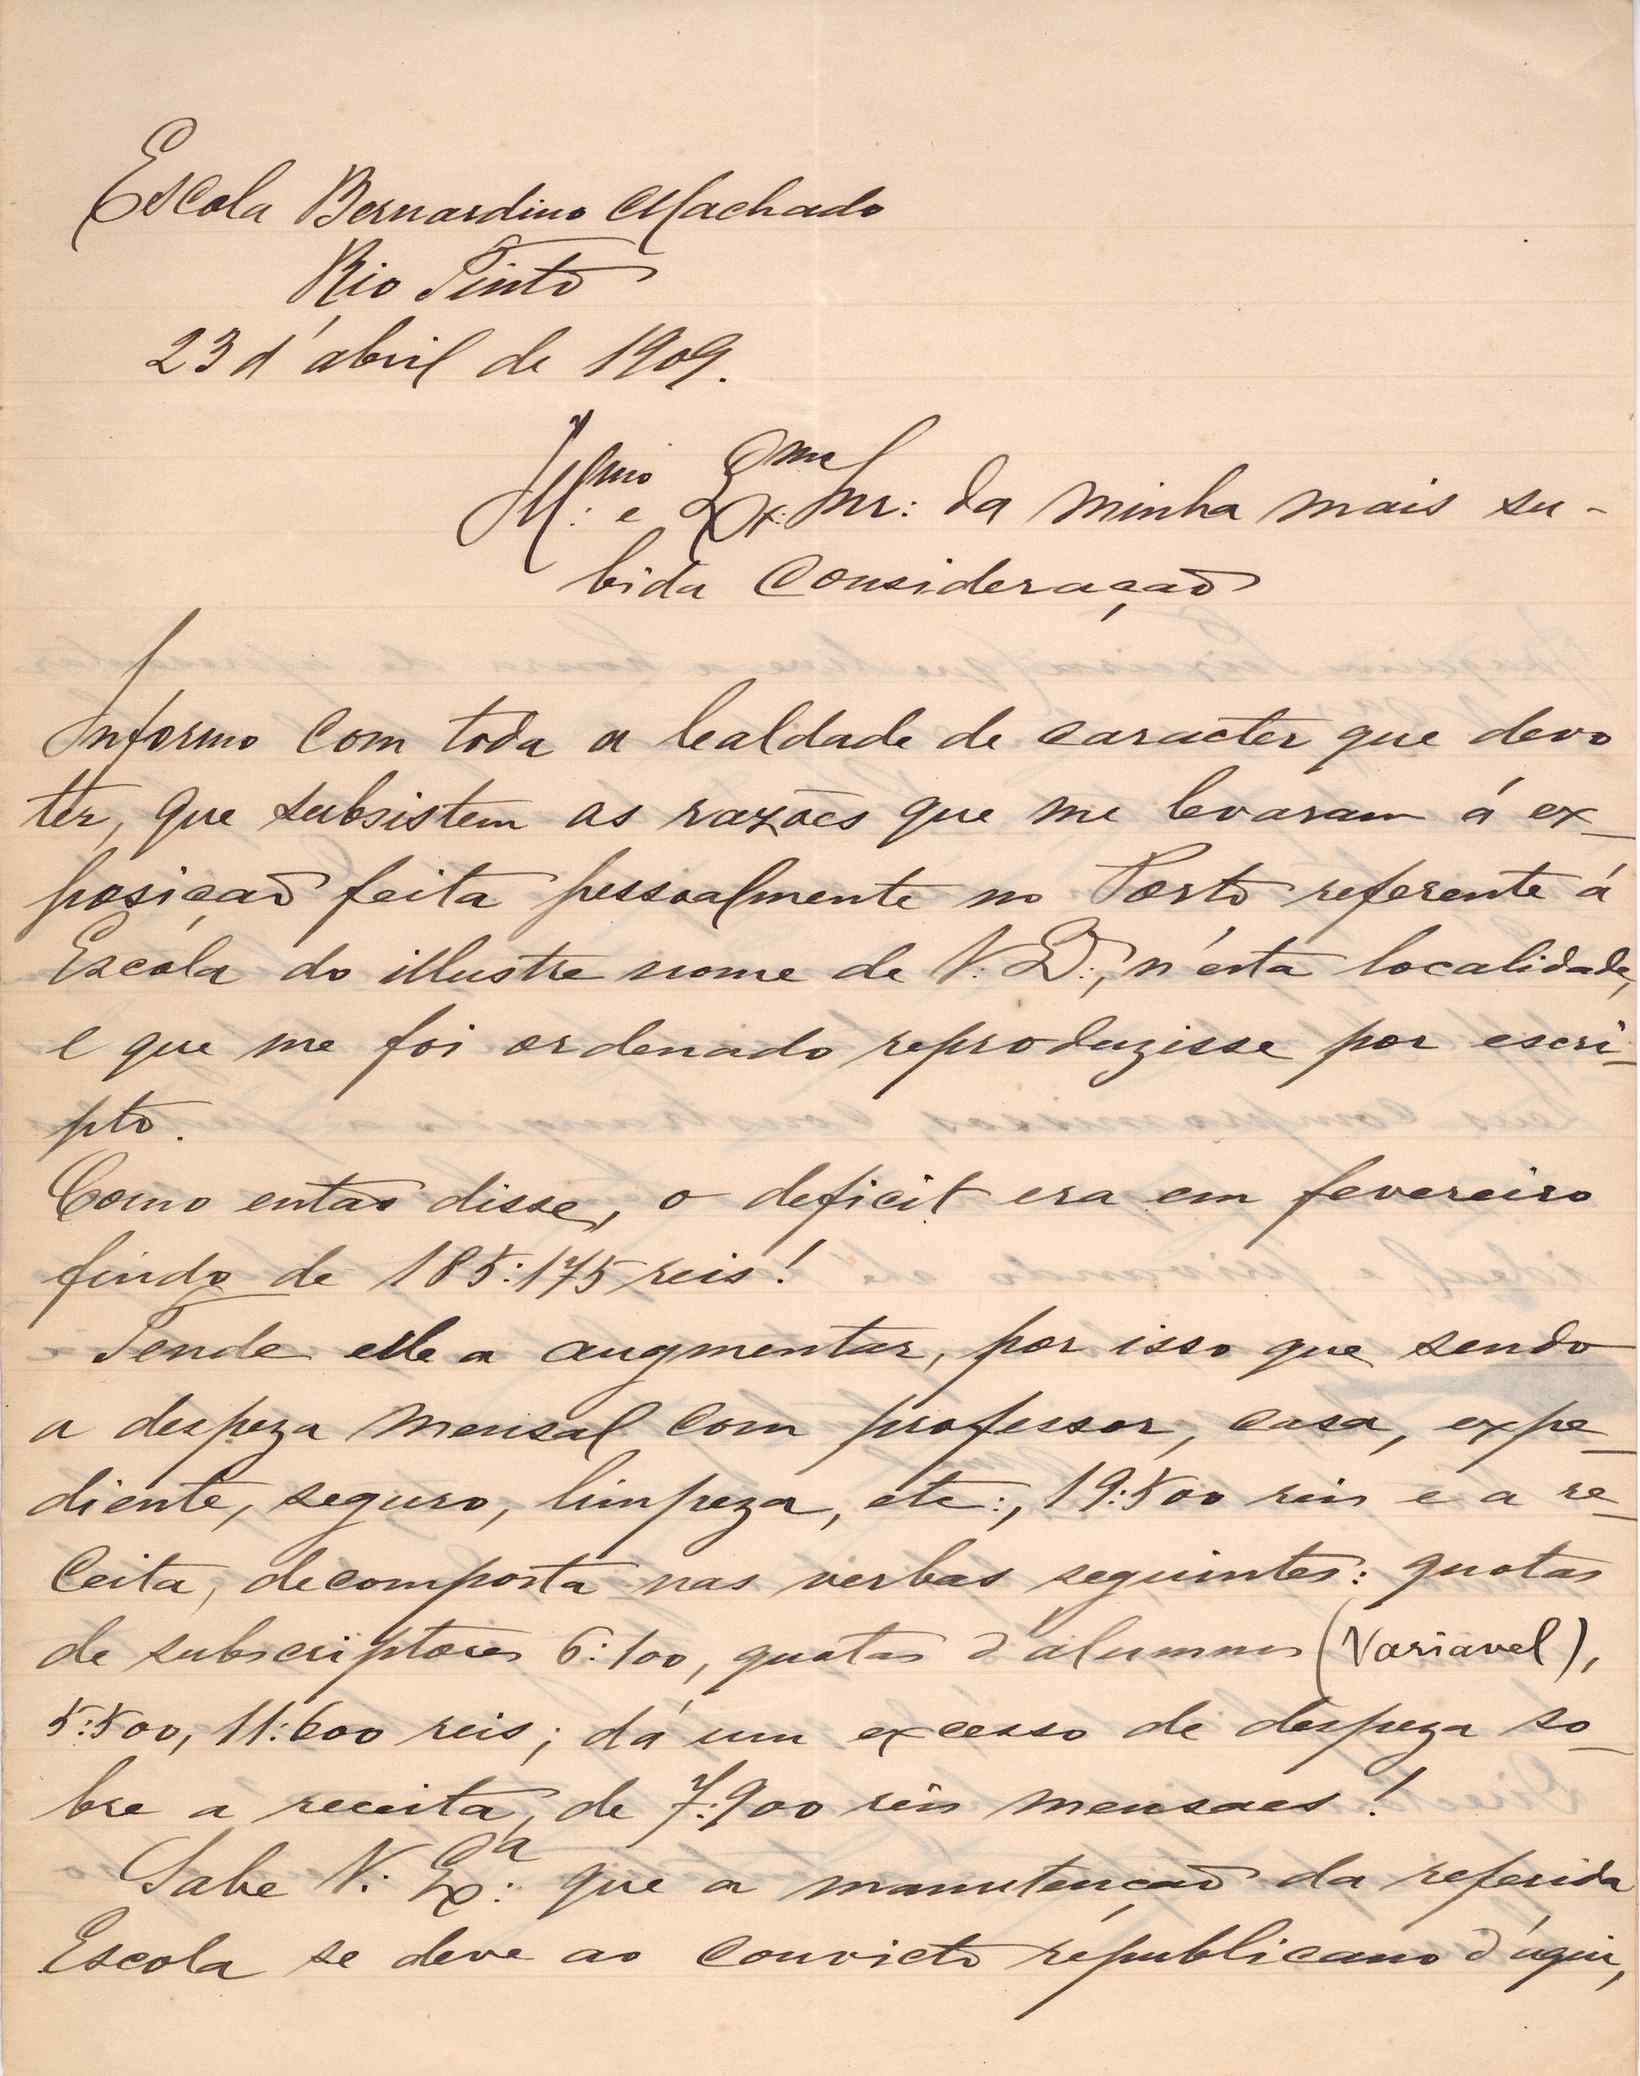 Escola Bernardino Machado
Rio Tinto
23 d'abril de 1909.
Ill.mo e Ex.mo Snr: da minha mais su-
bida consideração
Informo com toda a lealdade de caracter que devo
ter, que subsistem as razões que me levaram á ex-
posição feita pessoalmente no Porto referente á
Escóla do illustre nome de V. Ex.:, n'esta localidade,
e que me foi ordenado reproduzisse por escri-
pto.
Como então disse, o deficit era em fevereiro
findo de 185:175 reis!
Tende elle a augmentar, por isso que sendo
a despeza mensal com professor, casa, expe-
diente, seguro, limpeza, etc:, 19:500 reis e a re-
ceita, decomposta nas verbas seguintes: quotas
de subscriptores 6:100, quotas d'alumnos (Variavel),
5:500, 11:600 reis; dá um excesso de despeza so-
bre a receita, de 7:900 reis mensaes!
Sabe V. Ex.a que a manutenção da referida
Escola se deve ao convicto republicano d'aqui,